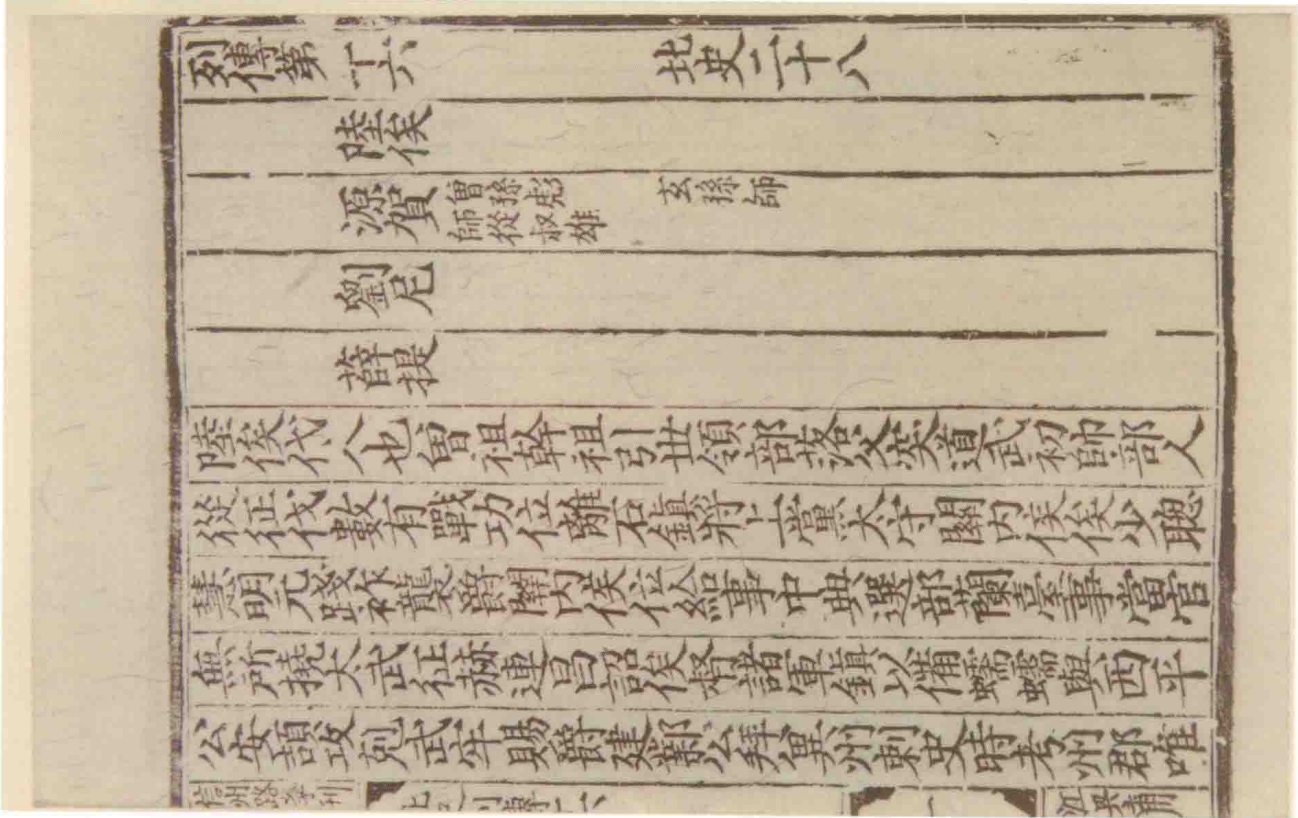 列傳第十六 北史二十八
陸俟
源賀 曾孫彪 玄孫師
師從叔雄
劉尼
薛提
陸俟代人也曽祖幹祖引世領部落父突道武初帥部人
從征伐數有戰功位離石鎮將上黨太守關内侯俟少聰
慧明元踐祚襲爵關内侯位給事中典選部蘭臺事當官
無所撓太武征赫連昌詔俟督諸軍鎮以備蠕蠕與西平
公安頡攻剋武牢賜爵建鄴公拜兾州刺史時考州郡唯
信州路學刊 北史列傳十六 一